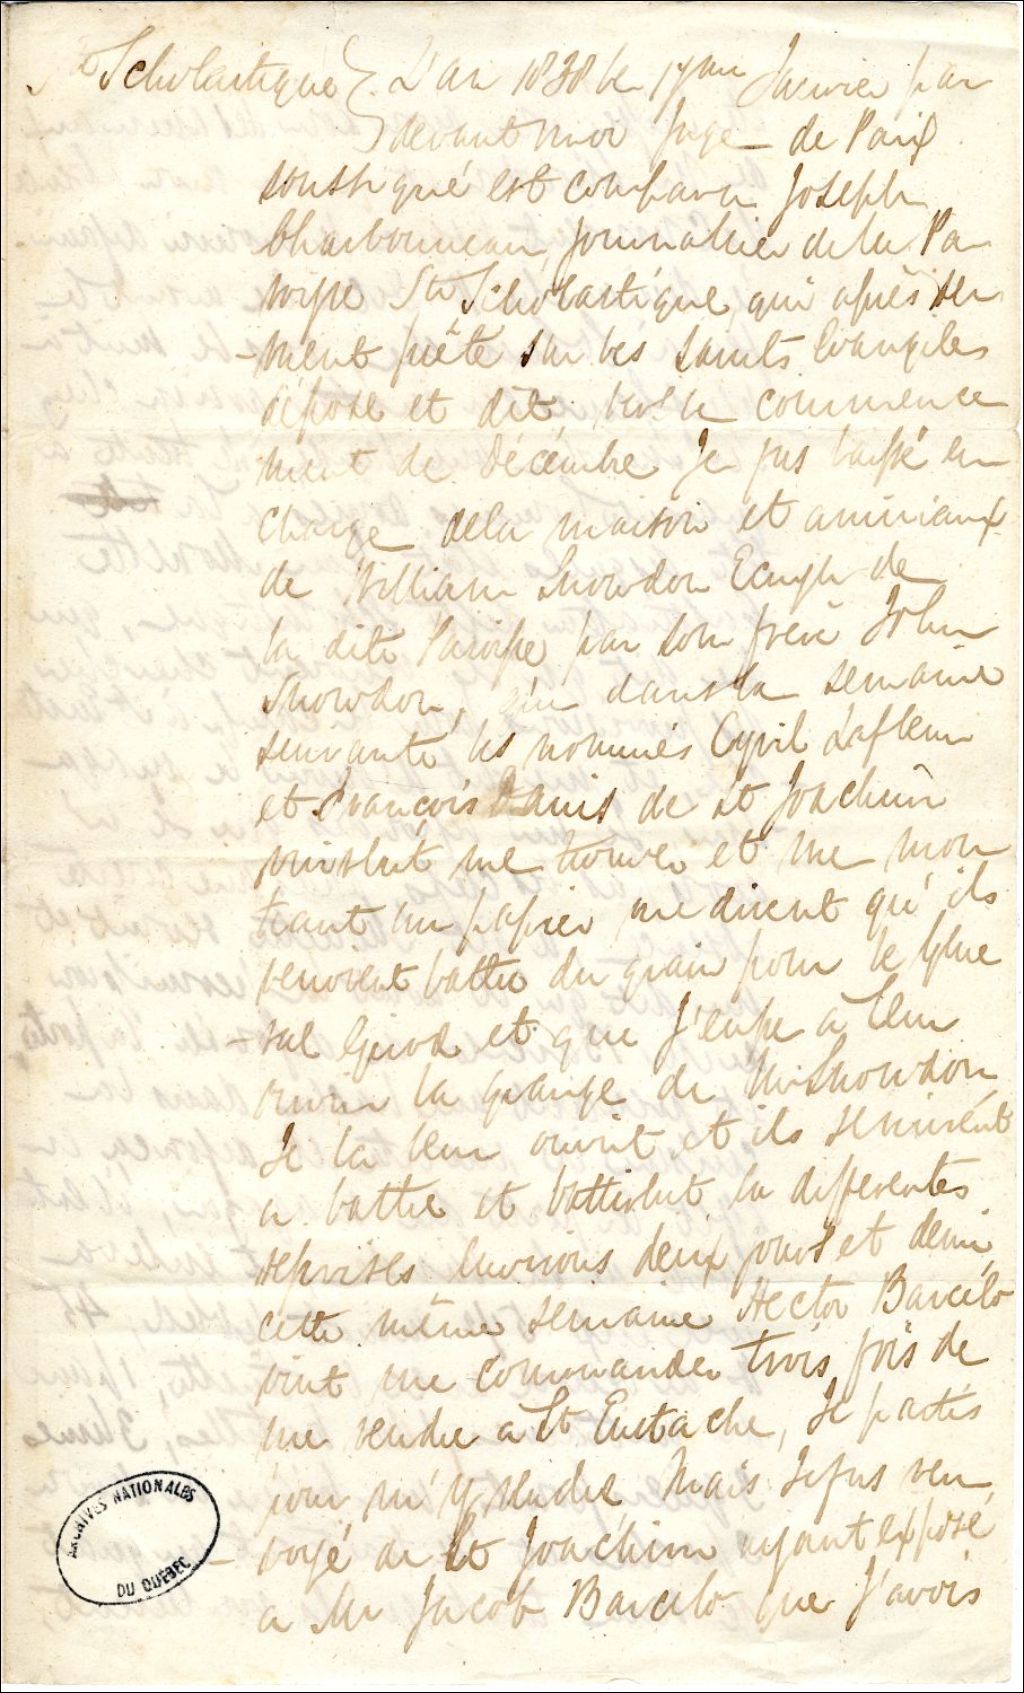 Ste Scholastique } L'an 1838 le 17me Janvier par
devant moi Juge de Paix
soussigné est comparu Joseph
Charbonneau, Journallier de la Pa
roisse Ste Scholastique qui après ser
-ment prêté sur les saints Evangiles
dépose et dit, vers le commence
ment de décembre Je fus laissé en
charge de la maison et animaux
de William Snowdon Ecuyer de
la dite Paroisse par son frère John
Snowdon, que dans la semaine
suivante les nommés Cyril Lafleur
et François Danis de St Joachim
vinrent me trouver et me mon
trant un papier me dirent qu'ils
venoient battre du grain pour le Géne
-ral Girod et que J'eusse a leur
ouvrir la grange de Mr Snowdon,
Je la leur ouvrit et ils se mirent
a battre et battirent a differentes
reprises environs deux jours et demi,
cette même semaine Hector Barcelo
vint me commander trois fois de
me rendre a St Eustache, Je partis
pour m'y rendre, Mais Je fus ren
-voyé de St Joachim ayant exposé
a Mr Jacob Barcelo que J'avois
ARCHIVES NATIONALES
DU QUÉBEC